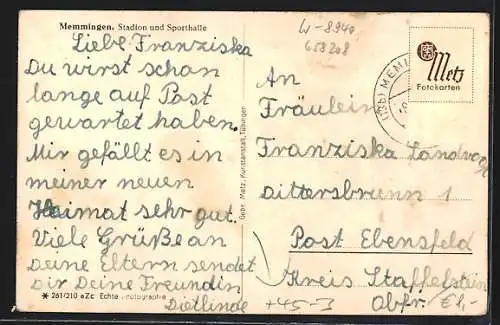 Memmingen. Stadion und Sporthalle
Liebe Franziska
Du wirst schon
lange auf Post
gewartet haben.
Mir gefällt es in
meiner neuen
Heimat sehr gut.
Viele Grüße an
Deine Eltern sendet
Dir Deine Freundin
Dietlinde
* 261/210 eZc Echte Photographie
Gebr. Metz, Kunstanstalt, Tübingen
W-8940
658208
(13b) MEMMI
Metz
Fotokarten
An
Fräulein
Franziska Landvogt
Dittersbrunn 1
Post Ebensfeld
Kreis Staffelstein
Abfr.
+45-3